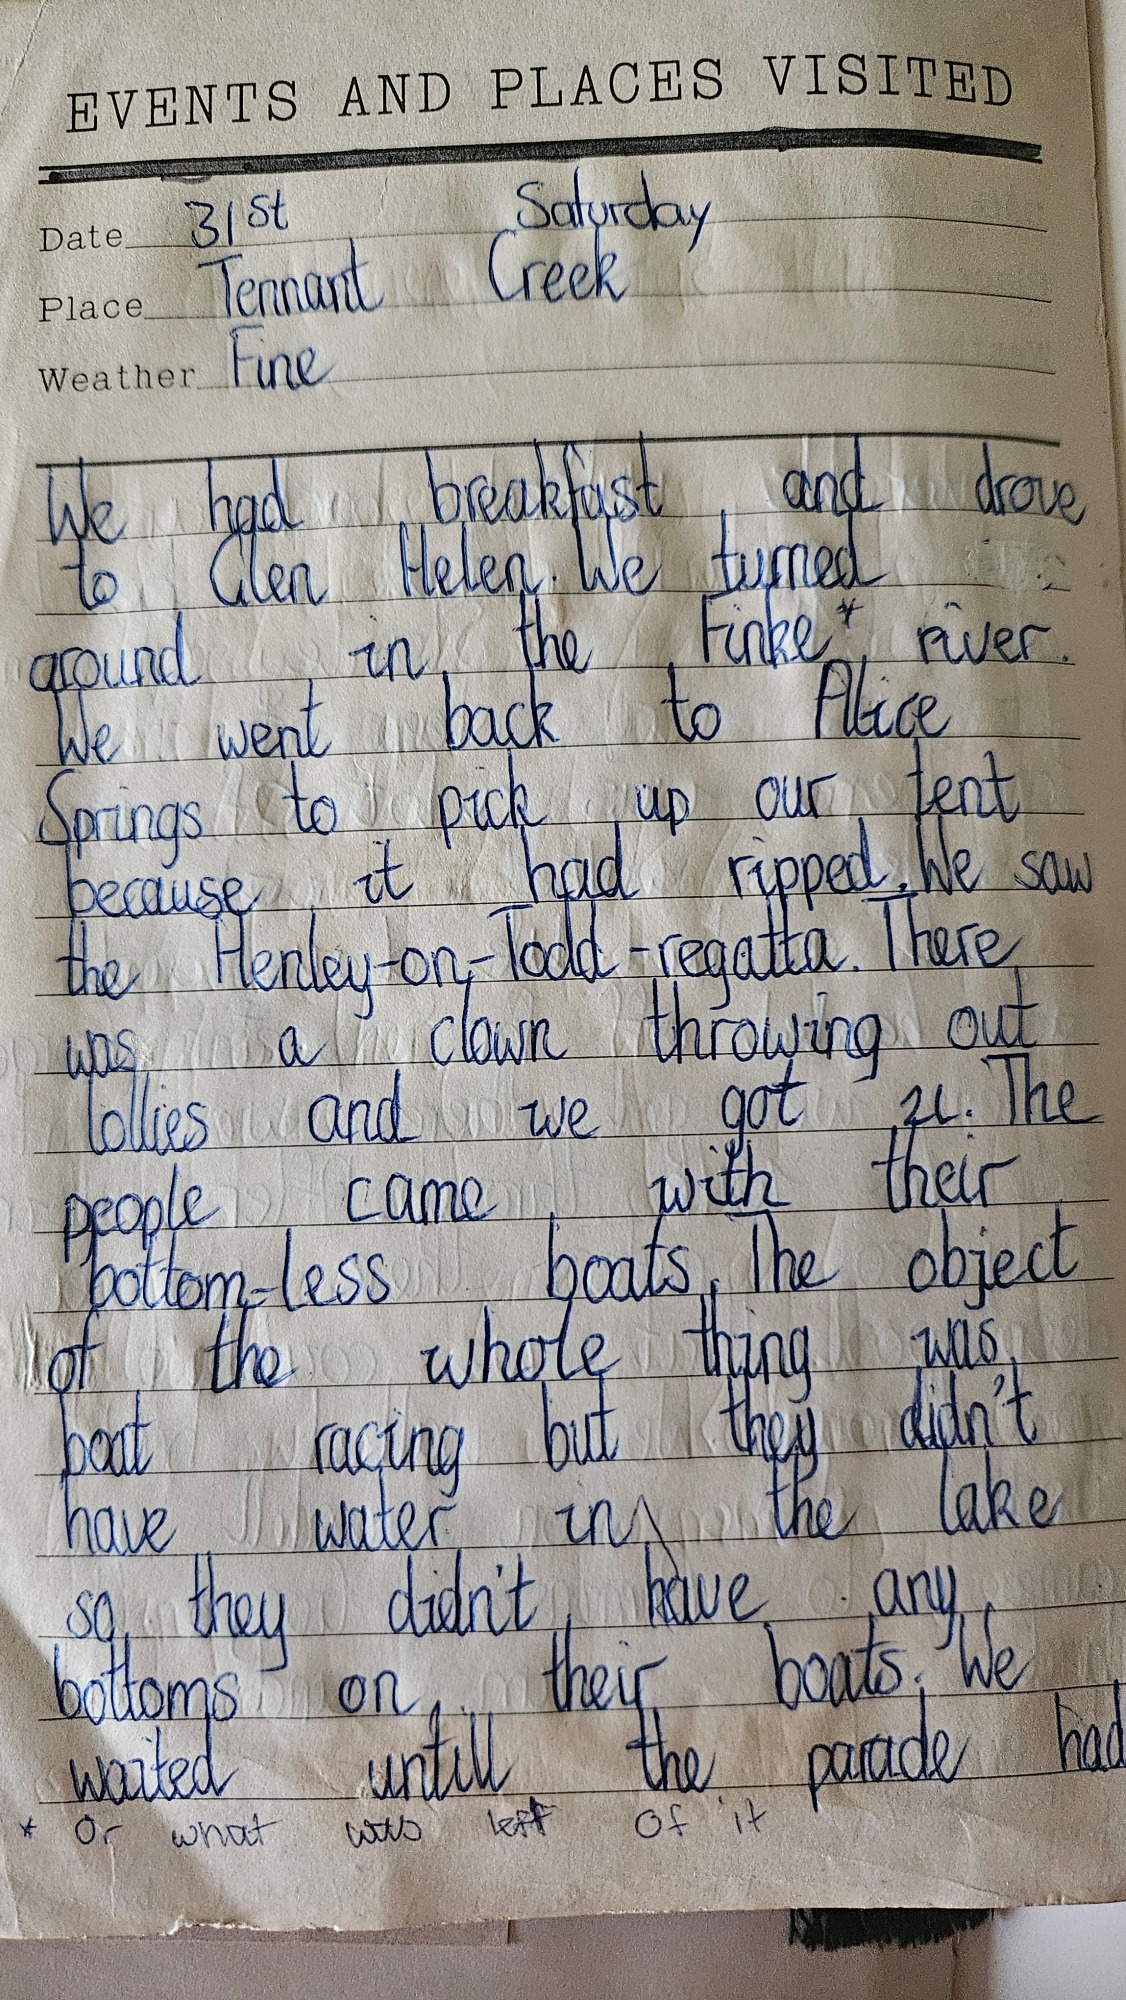 EVENTS AND PLACES VISITED
Date 31st Saturday
Place Tennant Creek
Weather Fine
We had breakfast and drove
to Glen Helen. We turned
around in the Finke* river.
We went back to Alice
Springs to pick up our tent
because it had ripped. We saw
the Henley-on-Todd-regatta. There
was a clown throwing out
lollies and we got 21. The
people came with their
bottom-less boats. The object
of the whole thing was
boat racing but they didn't
have water in the lake
so they didn't have any
bottoms on their boats. We
waited untill the parade had
* Or what was left of it